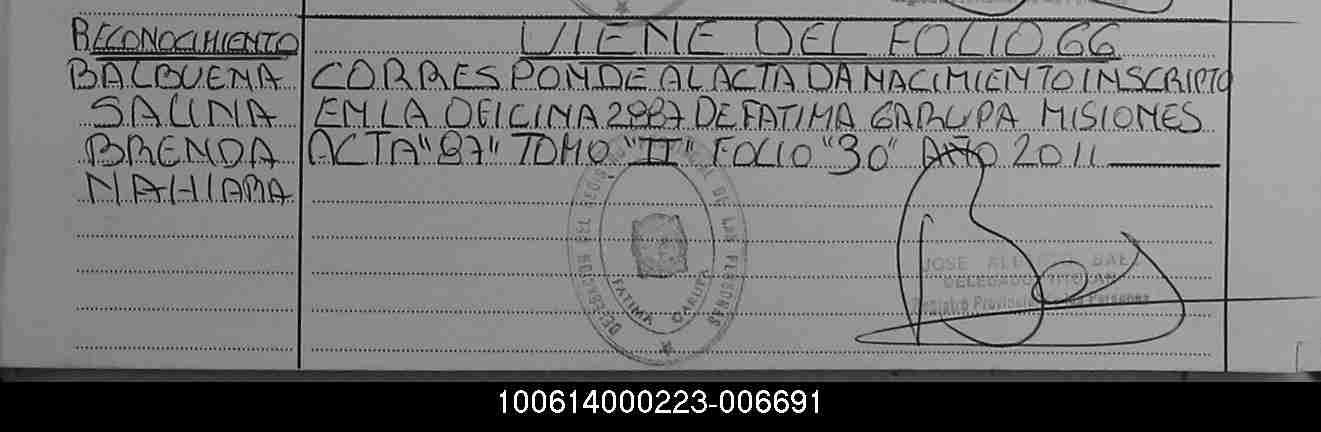 RECONOCIMIENTO
BALBUENA
SALINA
BRENDA
NAHIARA
VIENE DEL FOLIO 66
CORRESPONDE AL ACTA DA NACIMIENTO INSCRIPTO
EN LA OFICINA 2887 DE FATIMA GARUPA MISIONES
ACTA "87" TOMO "II" FOLIO "30" AÑO 2011
FATIMA GARUPA
JOSE BAEZ
DELEGADO TITULAR
Registro Provincial de las Personas
100614000223-006691